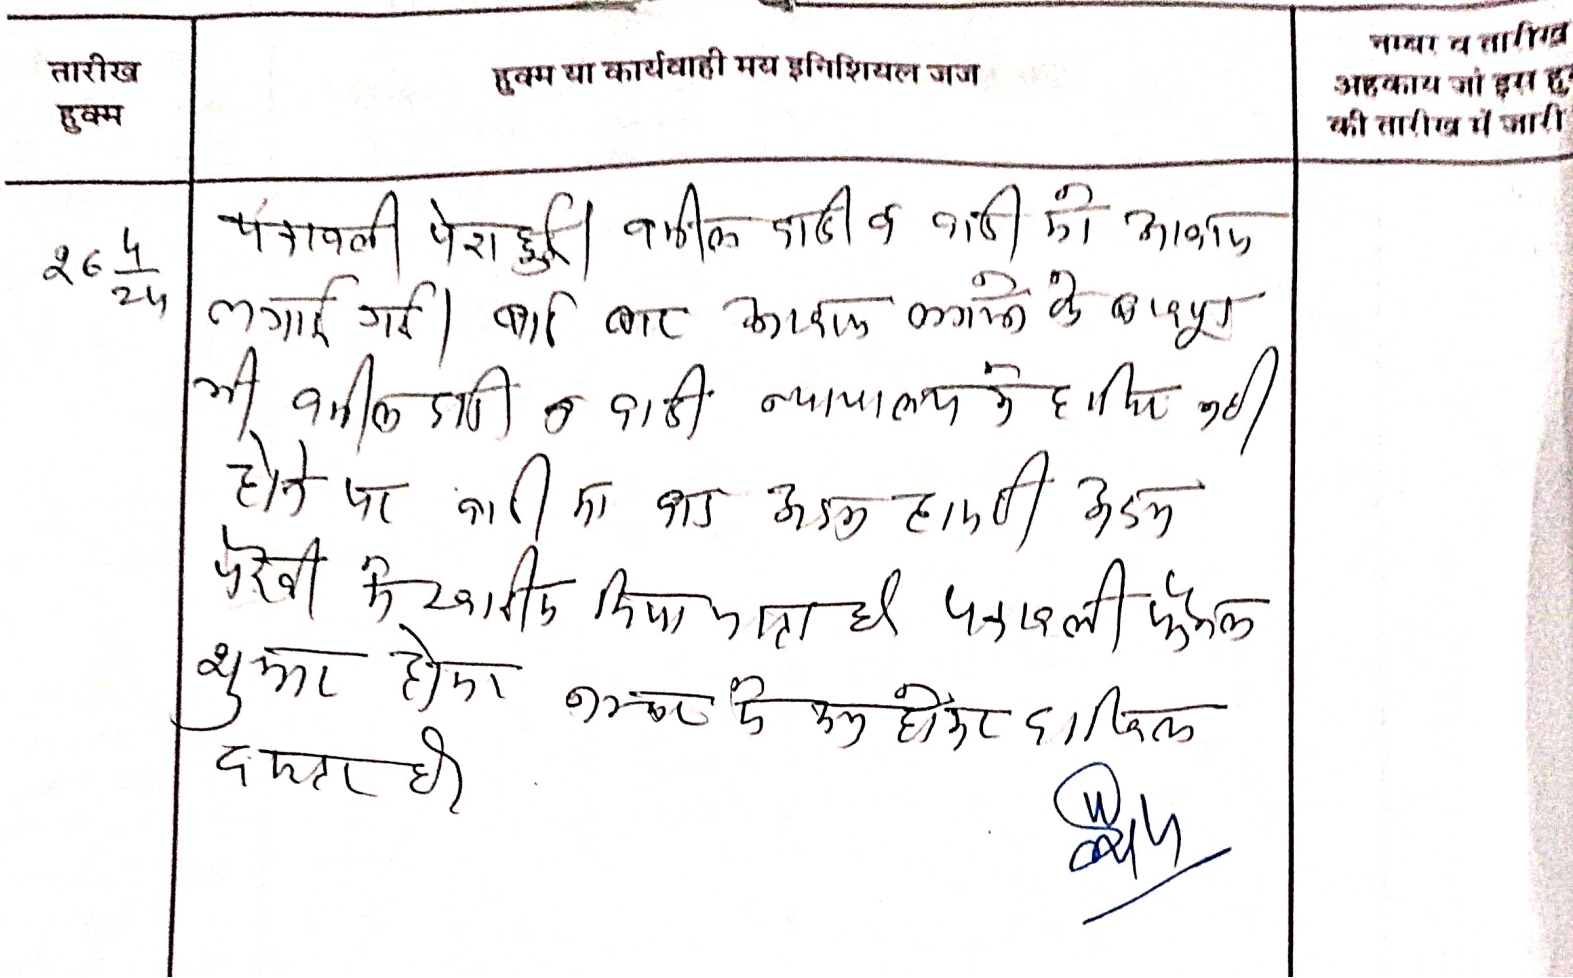 तारीख
हुक्म
हुक्म या कार्यवाही मय इनिशियल जज
नम्बर व तारीख
अहकाम जो इस हु
की तारीख में जारी
26 4/24
पत्रावली पेश हुई। वकील वादी व वादी को आवाज
लगाई गई। बार बार आवाज लगाने के बावजूद
भी वकील वादी व वादी न्यायालय में हाजिर नही
होने पर वादी का वाद अदम हाजरी अदम
पैरवी में खारीज किया जाता है। पत्रावली फैसल
शुमार होकर नम्बर से कम होकर दाखिल
दफ्तर हो।